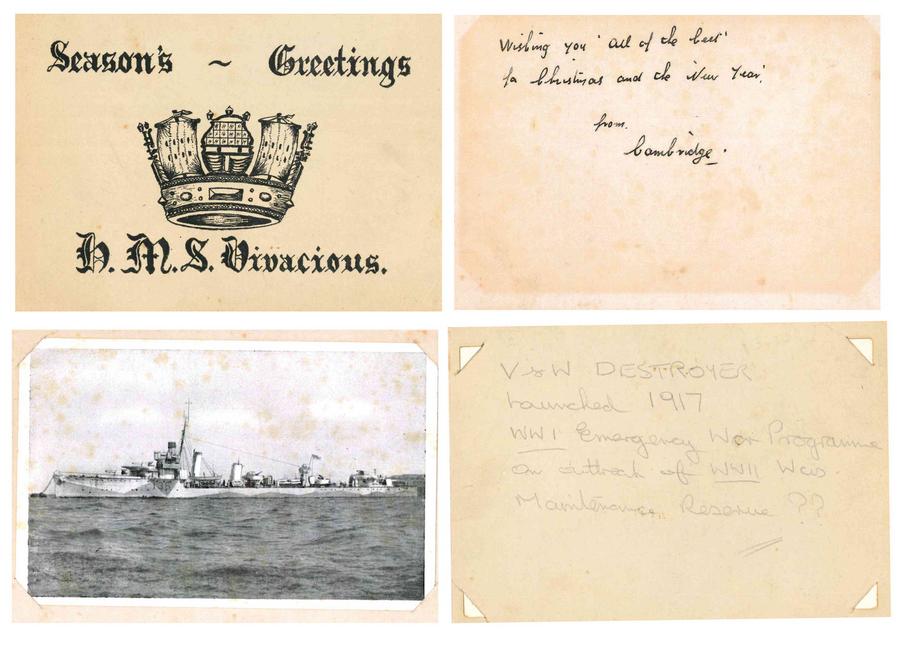 Season's ~ Greetings
H.M.S. Vivacious.
Wishing you 'all of the best'
for Christmas and the New Year.
from.
Cambridge.
V & W DESTROYER
Launched 1917
WW1 Emergency War Programme
on outbreak of WWII Was
Maintenance Reserve ??